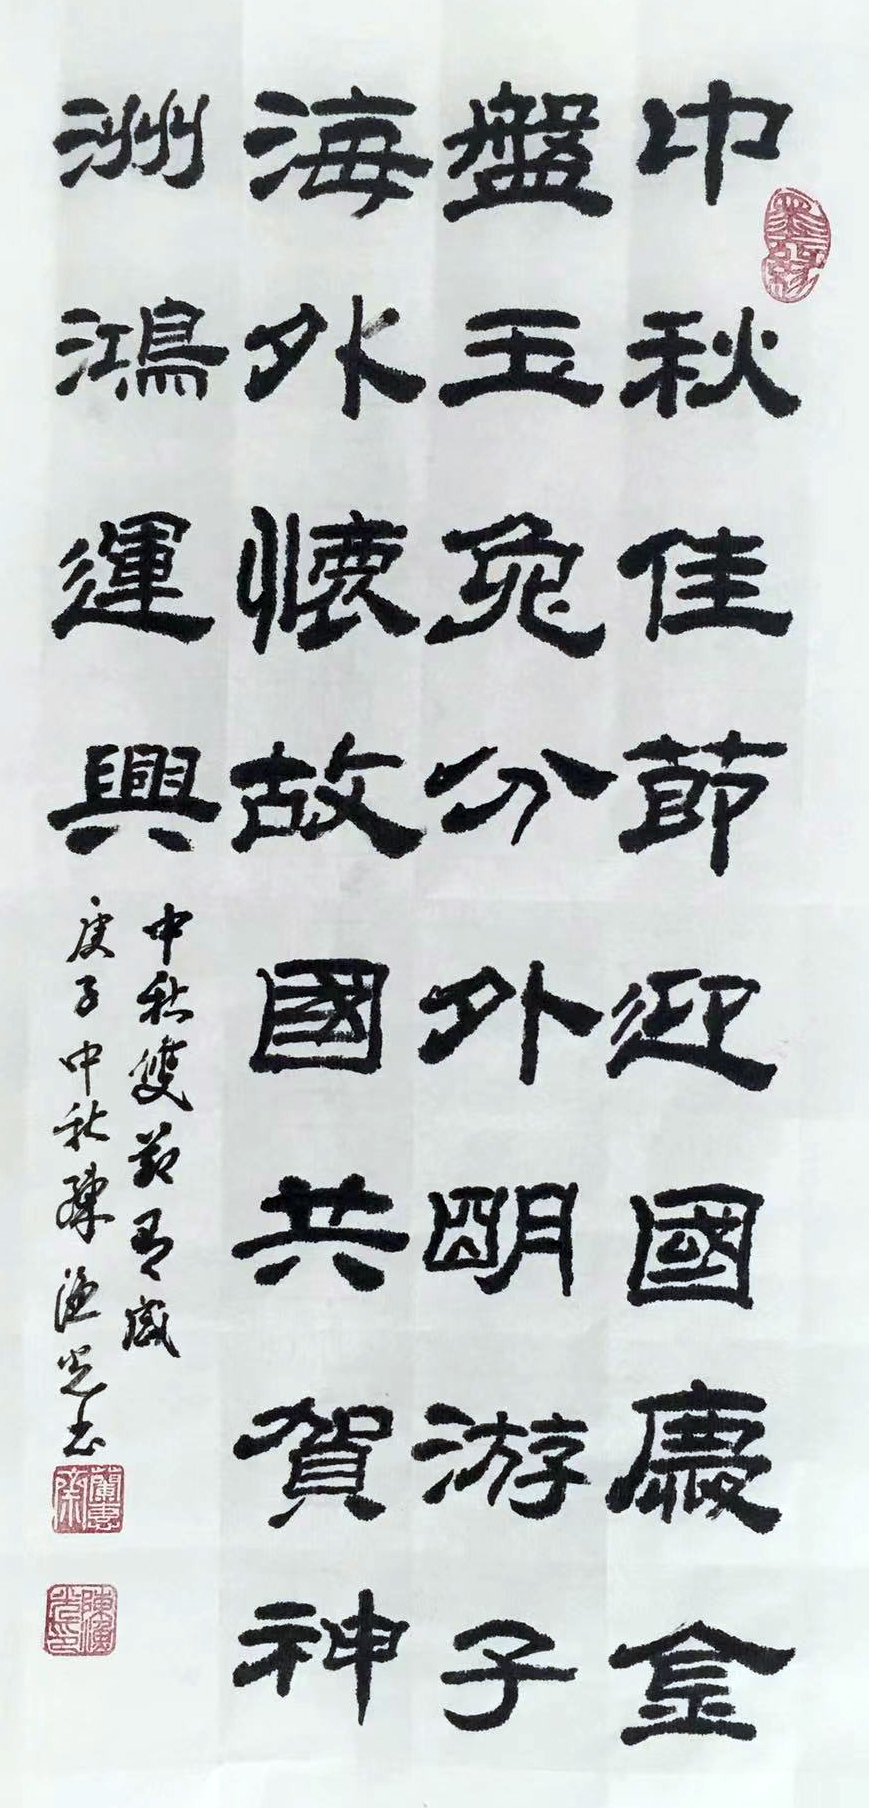 中秋佳節迎國慶金
盤玉兔分外明游子
海外懷故國共賀神
洲鴻運興
中秋雙節有感
庚子中秋陳漁光书